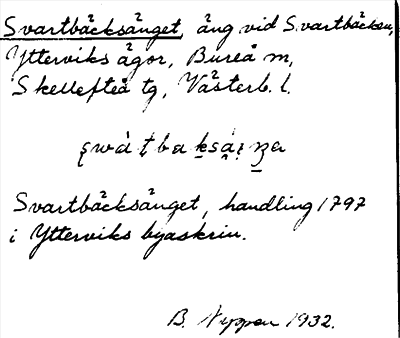 Svartbäcksänget, äng vid Svartbäcken,
Ytterviks ägor, Bureå sn,
Skellefteå tg, Västerb. l.
Svartbäcksänget, handling 1797
i Ytterviks byaskrin.
B. Nyppen 1932.